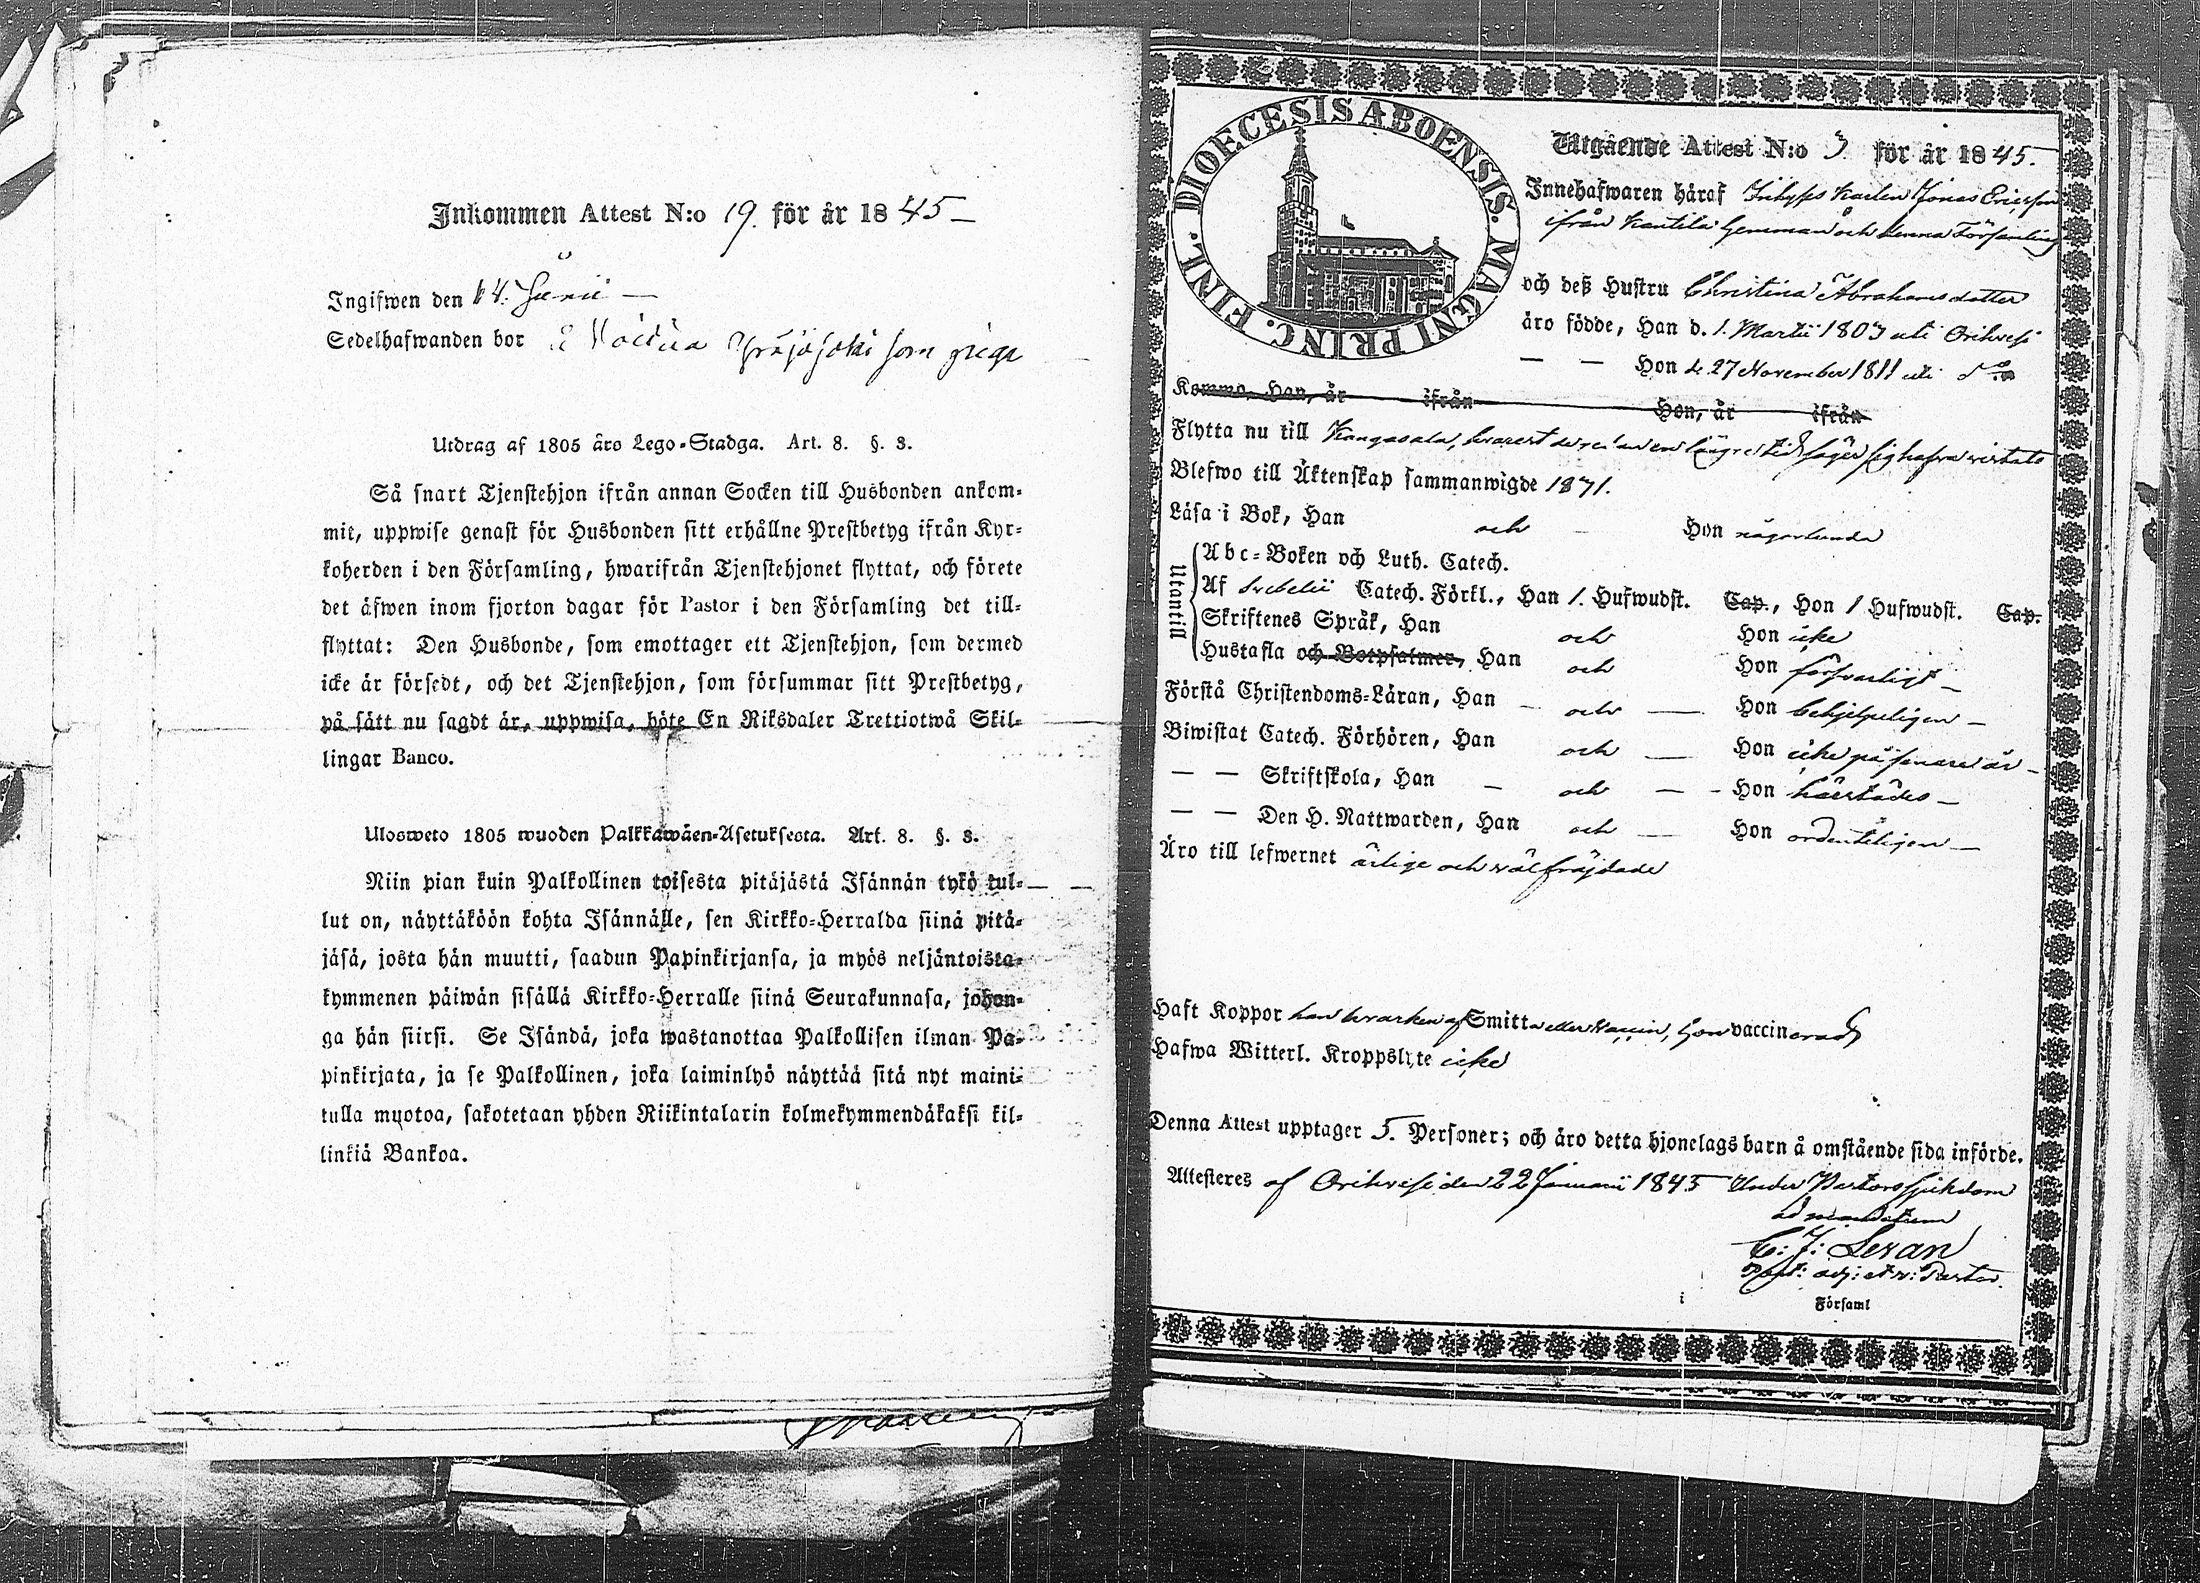 Inkommen Attest N:o 19. för år 1845
Ingifwen den 14. Junii
Sedelhafwanden bor som piga
Utdrag af 1805 års Lego-Stadga. Art. 8. §. 3.
Så snart Tjenstehjon ifrån annan Socken till Husbonden ankom-
mit, uppwise genast för Husbonden sitt erhållne Prestbetyg ifrån Kyr-
koherden i den Församling, hwarifrån Tjenstehjonet flyttat, och förete
det äfwen inom fjorton dagar för Pastor i den Församling det till-
flyttat: Den Husbonde, som emottager ett Tjenstehjon, som dermed
icke är försedt, och det Tjenstehjon, som försummar sitt Prestbetyg,
på sätt nu sagdt är, uppwisa, böte En Riksdaler Trettiotwå Skil-
lingar Banco.
Ulosweto 1805 wuoden Palkkawäen-Asetuksesta. Art. 8. §. 3.
Niin pian kuin Palkollinen toisesta pitäjästä Isännän tykö tul-
lut on, näyttäköön kohta Isännälle, sen Kirkko-Herralda siinä pitä-
jäsä, josta hän muutti, saadun Papinkirjansa, ja myös neljäntoista-
kymmenen päiwän sisällä Kirkko-Herralle siinä Seurakunnasa, johon-
ga hän siirsi. Se Isändä, joka wastanottaa Palkollisen ilman Pa-
pinkirjata, ja se Palkollinen, joka laiminlyö näyttää sitä nyt maini-
tulla muotoa, sakotetaan yhden Riikintalarin kolmekymmendäkaksi kil-
linkiä Bankoa.
DIOECESIS ABOENSIS. MAGNI PRINC. FINL.
Utgående Attest N:o 3. för år 1845.
Innehafwaren häraf Inhyses Karlen Jonas Ericsson
ifrån Kantila hemman och denna Församling
och deß Hustru Christina Abrahamsdotter
äro födde, Han d. 1. Martii 1803 uti Orihvesi
— — Hon d. 27 November 1811 uti do
Komma, Han, år ifrån Hon, år ifrån
Flytta nu till Kangasala, hvarest de redan en längre tid säger sig hafva vistats
Blefwo till Äktenskap sammanwigde 1831.
Läsa i Bok, Han och Hon någorlunda
Utantill
Abc-Boken och Luth. Catech.
Af Svebelii Catech. Förkl., Han 1. Hufwudst. Cap., Hon 1 Hufwudst. Cap.
Skriftenes Språk, Han och Hon icke
Hustafla och Botpsalmer, Han och Hon försvarligt
Förstå Christendoms-Läran, Han — och — Hon behjelpeligen —
Biwistat Catech. Förhören, Han och — Hon icke på senare år —
— — Skriftskola, Han — och — - Hon härstädes —
— — Den H. Nattwarden, Han och — Hon ordenteligen —
Äro till lefwernet ärlige och välfräjdade
Haft Koppor han hvarken af Smitta eller Vaccin, hon vaccinerad
Hafwa Witterl. Kroppslyte icke
Denna Attest upptager 5. Personer; och äro detta hjonelags barn å omstående sida införde.
Attesteres af Orihvesi den 22 Januarii 1845 Under Pastors sjukdom
ad mandatum
C: J: Lexan
Past: adj: et v: Pastor.
i Församl